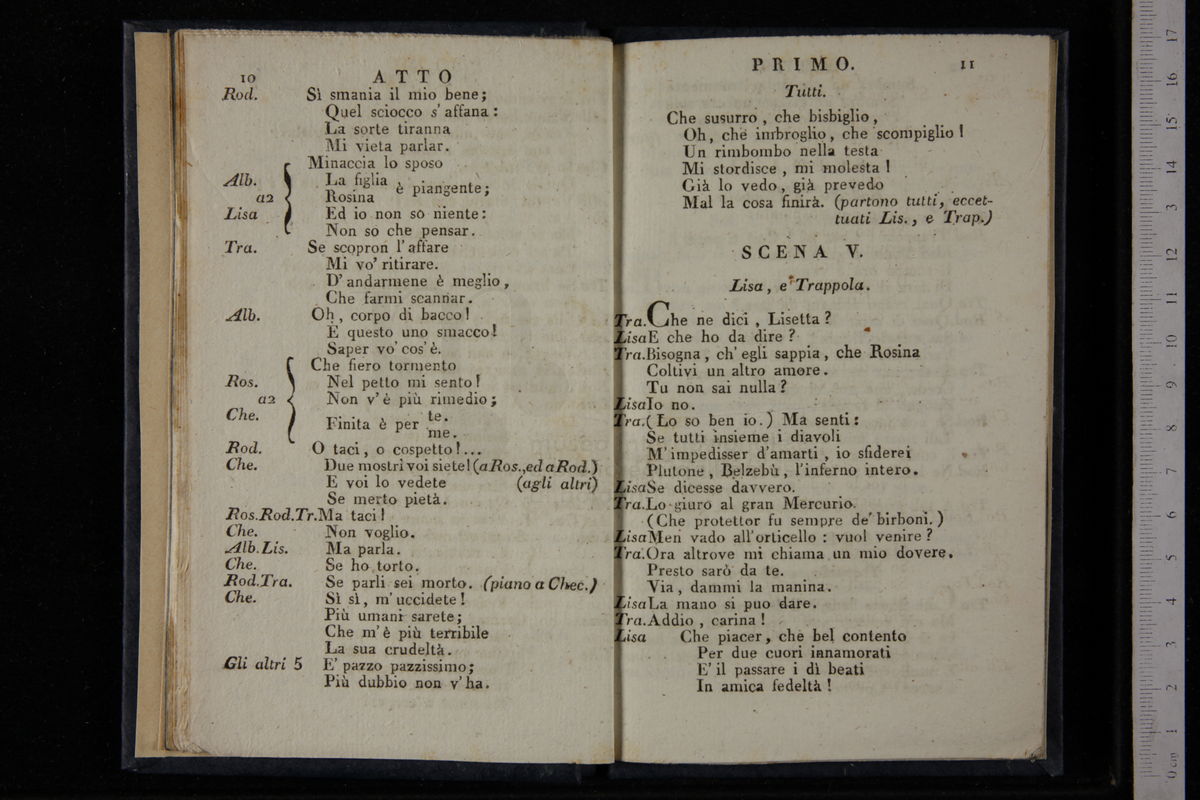 10 ATTO
Rod. Sì smania il mio bene;
Quel sciocco s' affana:
La sorte tiranna
Mi vieta parlar.
Minaccia lo sposo
Alb. La figlia è piangente;
a2 Rosina
Lisa Ed io non so niente:
Non so che pensar.
Tra. Se scopron l'affare
Mi vo' ritirare.
D' andarmene è meglio,
Che farmi scannar.
Alb. Oh, corpo di bacco!
È questo uno smacco!
Saper vo' cos' è.
Che fiero tormento
Ros. Nel petto mi sento!
a2 Non v' è più rimedio;
Che. Finita è per te.
me.
Rod. O taci, o cospetto!...
Che. Due mostri voi siete! (a Ros., ed a Rod.)
E voi lo vedete (agli altri)
Se merto pietà.
Ros. Rod. Tr. Ma taci!
Che. Non voglio.
Alb. Lis. Ma parla.
Che. Se ho torto.
Rod. Tra. Se parli sei morto. (piano a Chec.)
Che. Sì sì, m' uccidete!
Più umani sarete;
Che m' è più terribile
La sua crudeltà.
Gli altri 5 E' pazzo pazzissimo;
Più dubbio non v' ha.
PRIMO. 11
Tutti.
Che susurro, che bisbiglio,
Oh, che imbroglio, che scompiglio!
Un rimbombo nella testa
Mi stordisce, mi molesta!
Già lo vedo, già prevedo
Mal la cosa finirà. (partono tutti, eccet-
tuati Lis., e Trap.)
SCENA V.
Lisa, e Trappola.
Tra. Che ne dici, Lisetta?
Lisa E che ho da dire?
Tra. Bisogna, ch' egli sappia, che Rosina
Coltivi un altro amore.
Tu non sai nulla?
Lisa Io no.
Tra. (Lo so ben io.) Ma senti:
Se tutti insieme i diavoli
M' impedisser d'amarti, io sfiderei
Plutone, Belzebù, l'inferno intero.
Lisa Se dicesse davvero.
Tra. Lo giuro al gran Mercurio.
(Che protettor fu sempre de' birboni.)
Lisa Men vado all'orticello: vuol venire?
Tra. Ora altrove mi chiama un mio dovere.
Presto sarò da te.
Via, dammi la manina.
Lisa La mano si puo dare.
Tra. Addio, carina!
Lisa Che piacer, che bel contento
Per due cuori innamorati
E' il passare i dì beati
In amica fedeltà!
17
16
15
14
13
12
11
10
9
8
7
6
5
4
3
2
1
0 cm